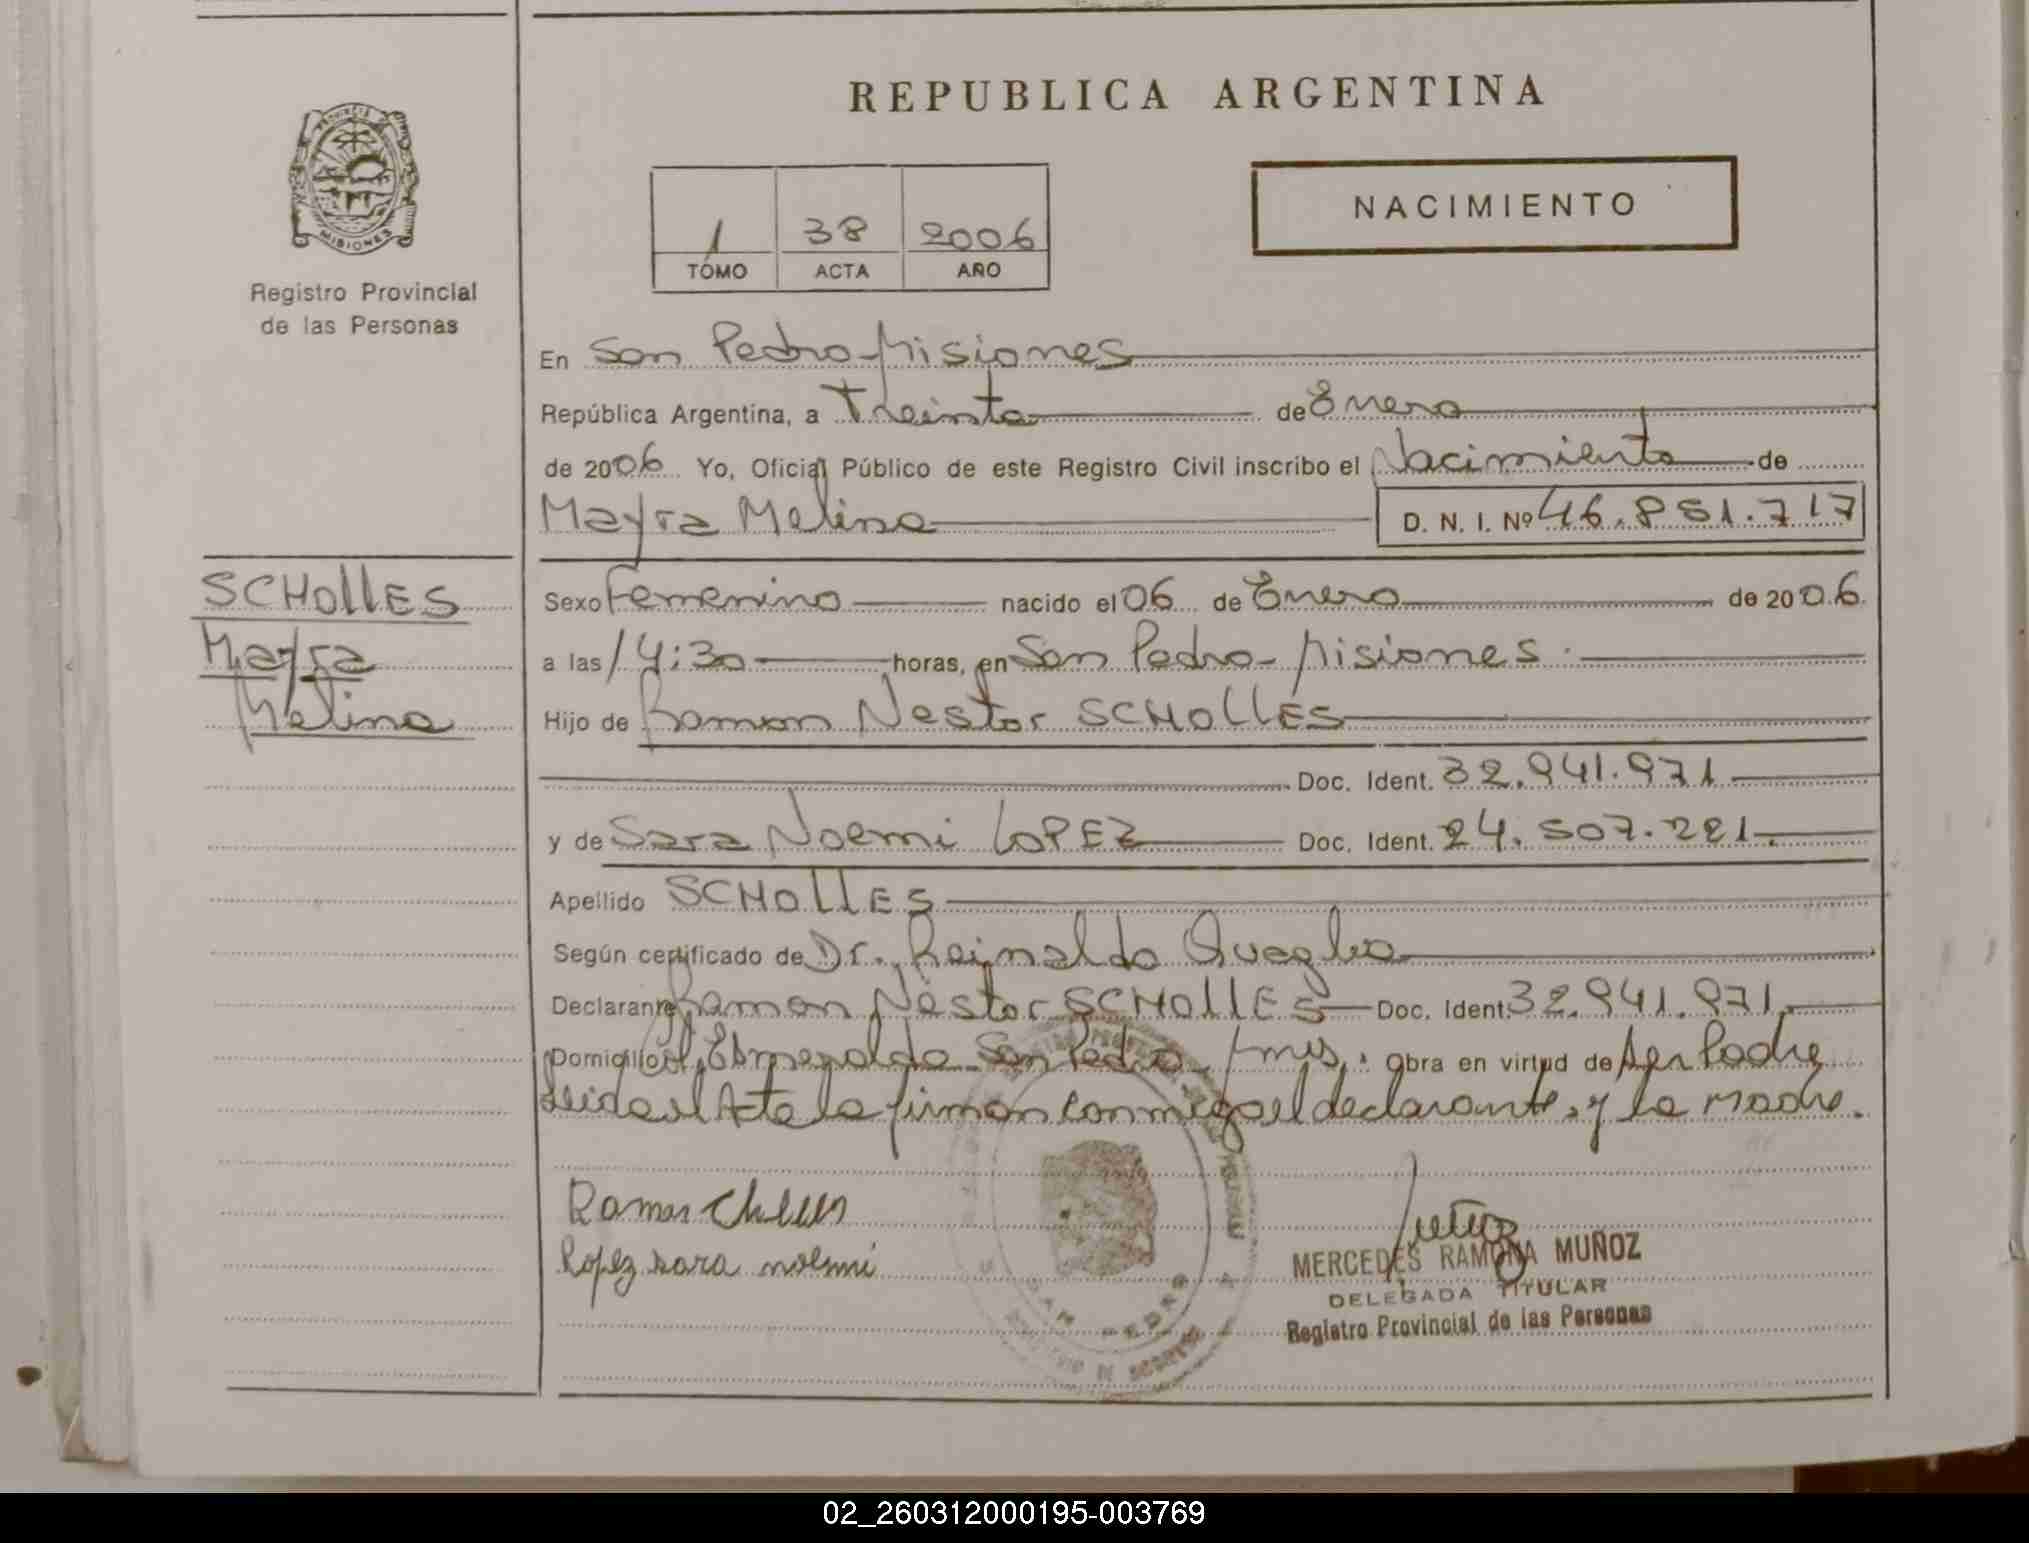 REPUBLICA ARGENTINA
PROVINCIA DE
MISIONES
Registro Provincial
de las Personas
NACIMIENTO
1 38 2006
TOMO ACTA AÑO
En San Pedro-Misiones
República Argentina, a Treinta de Enero
de 2006 Yo, Oficial Público de este Registro Civil inscribo el Nacimiento de
Mayra Melina D. N. I. Nº 46.851.717
SCHOllES
Mayra
Melina
Sexo Femenino nacido el 06 de Enero de 2006
a las 14:30 horas, en San Pedro-Misiones.
Hijo de Ramon Nestor SCHOllES
Doc. Ident. 32.941.971
y de Sara Noemi LOPEZ Doc. Ident. 24.507.221.
Apellido SCHOllES
Según certificado de Dr. Reinaldo Quaglia
Declarante Ramon Nestor SCHOllES Doc. Ident. 32.941.971.
Domicilio Esmeralda San Pedro, Mnes. Obra en virtud de Ser Padre
Leida el Acta la firman conmigo el declarante, y la Madre.
Ramon
Lopez sara noemi
SAN PEDRO
MERCEDES RAMONA MUÑOZ
DELEGADA TITULAR
Registro Provincial de las Personas
02_260312000195-003769